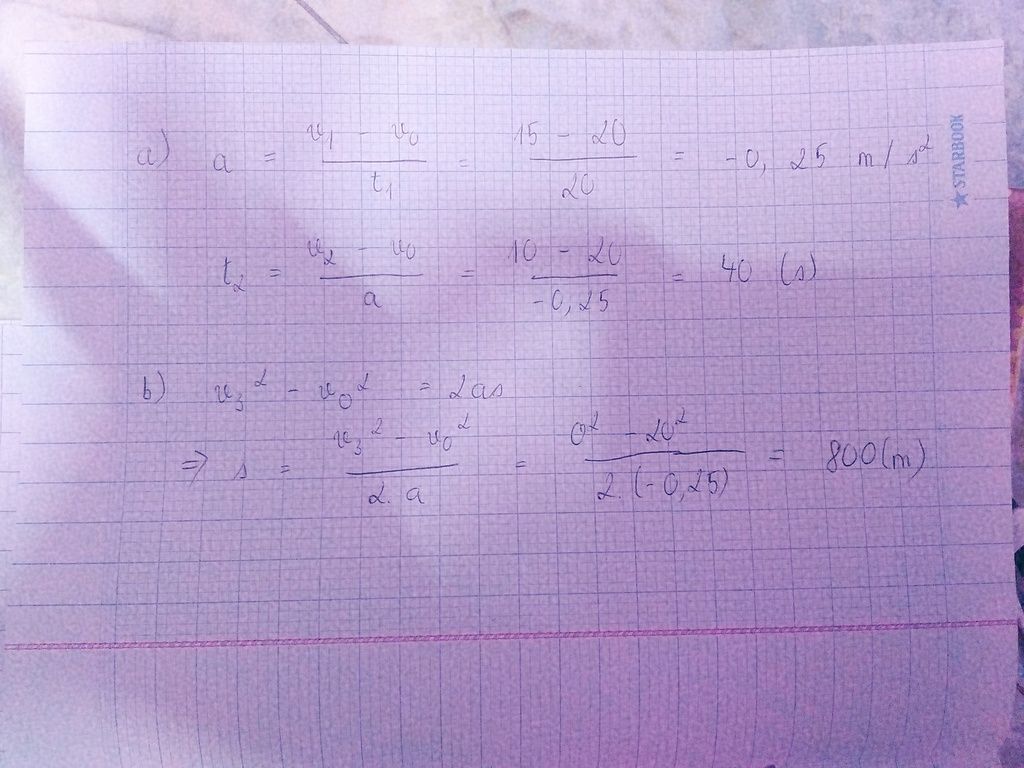 a) a = (v₁ - v₀)/t₁ = (15 - 20)/20 = -0,25 m/s²
t₂ = (v₂ - v₀)/a = (10 - 20)/(-0,25) = 40 (s)
b) v₃² - v₀² = 2as
⇒ s = (v₃² - v₀²)/(2.a) = (0² - 20²)/(2.(-0,25)) = 800(m)
★ STARBOOK